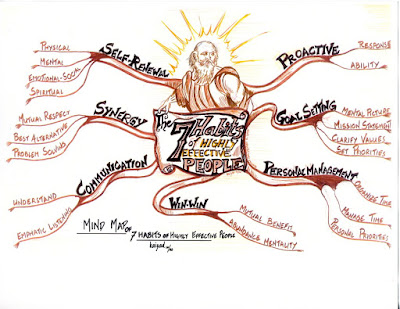 PHYSICAL
MENTAL
EMOTIONAL-SOCIAL
SPIRITUAL
SELF-RENEWAL
PROACTIVE
RESPONSE
ABILITY
MUTUAL RESPECT
BEST ALTERNATIVE
PROBLEM SOLVING
SYNERGY
The
7 Habits
OF HIGHLY
EFFECTIVE
PEOPLE
GOAL SETTING
MENTAL PICTURE
MISSION STATEMENT
CLARIFY VALUES
SET PRIORITIES
UNDERSTAND
EMPHATIC LISTENING
COMMUNICATION
PERSONAL MANAGEMENT
ORGANIZE TIME
MANAGE TIME
PERSONAL PRIORITIES
WIN-WIN
MUTUAL BENEFIT
ABUNDANCE MENTALITY
MIND MAP OF
7 HABITS OF HIGHLY EFFECTIVE PEOPLE